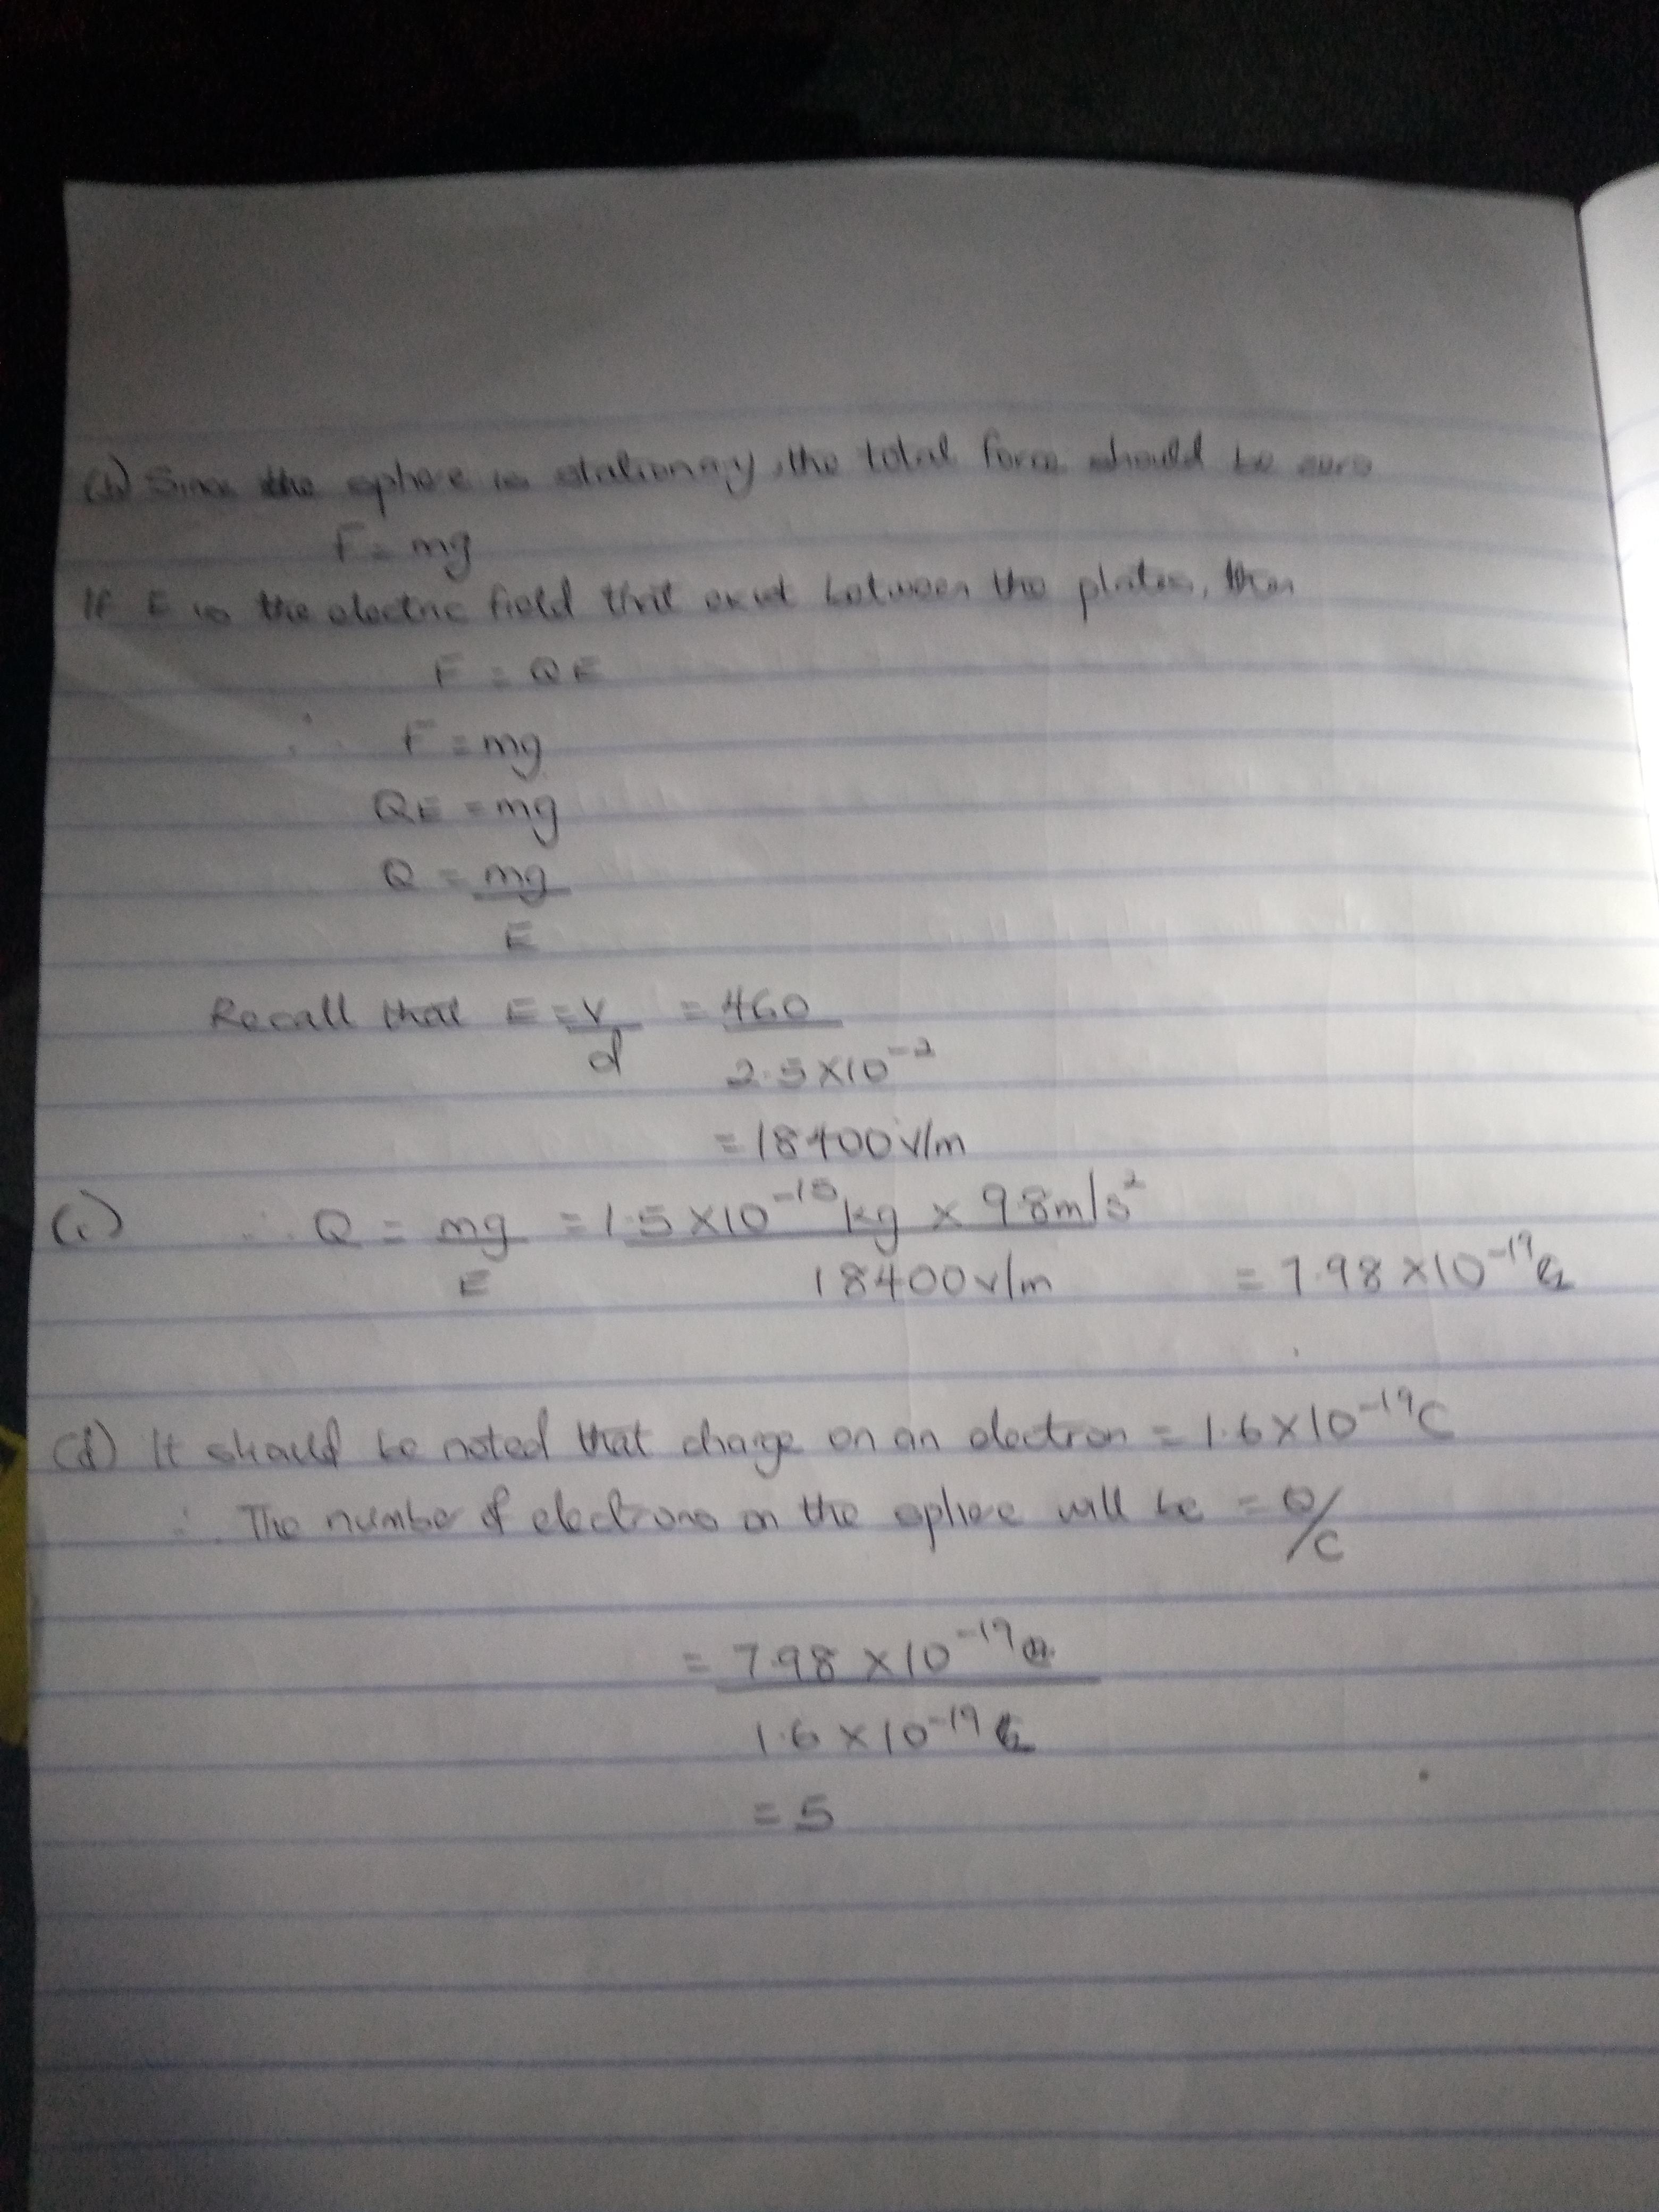 (b) Since the sphere is stationary, the total force should be zero
F = mg
If E is the electric field that exist between the plates, then
F = QE
∴ F = mg
QE = mg
Q = mg
E
Recall that E = V = 460
d 2.5 × 10⁻²
= 18400 v/m
(c) ∴ Q = mg = 1.5 × 10⁻¹⁵ kg × 9.8 m/s²
E 18400 v/m = 7.98 × 10⁻¹⁹
(d) It should be noted that charge on an electron = 1.6 × 10⁻¹⁹ C
∴ The number of electrons on the sphere will be = Q/C
= 7.98 × 10⁻¹⁹
1.6 × 10⁻¹⁹
= 5